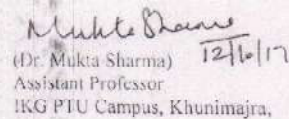 Mukta Sharma
(Dr. Mukta Sharma) 12/10/17
Assistant Professor
IKG PTU Campus, Khunimajra,